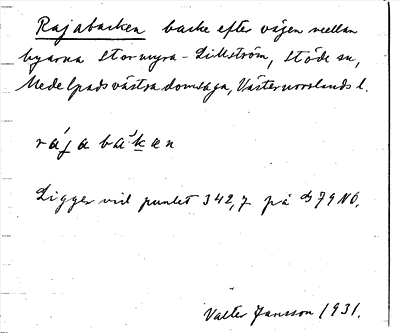 Rajabacken backe efter vägen mellan
byarna Stormyra - Lillström, Stöde sn,
Medelpads västra domsaga, Västernorrlands l.
rájabàken
Ligger vid punkt 342,7 på 79 NO.
Valter Jansson 1931.